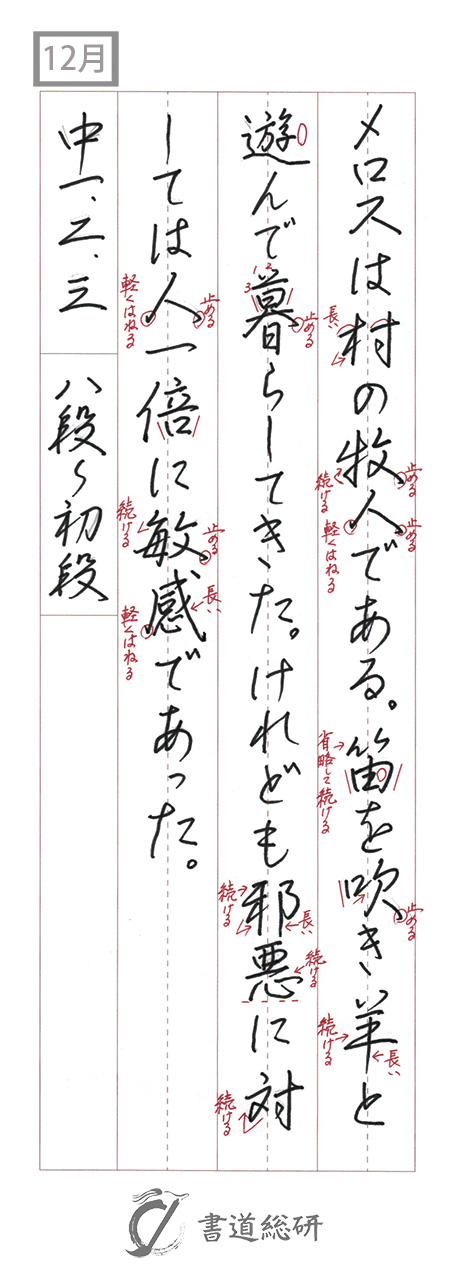 12月
メロスは村の牧人である。笛を吹き羊と
長い
止める
続ける
軽くはねる
止める
省略して続ける
止める
続ける
長い
遊んで暮らしてきた。けれども邪悪に対
1 2 3
止める
続ける
長い
続ける
続ける
しては人一倍に敏感であった。
軽くはねる
止める
続ける
止める
長い
軽くはねる
中一、二、三
八段〜初段
書道総研